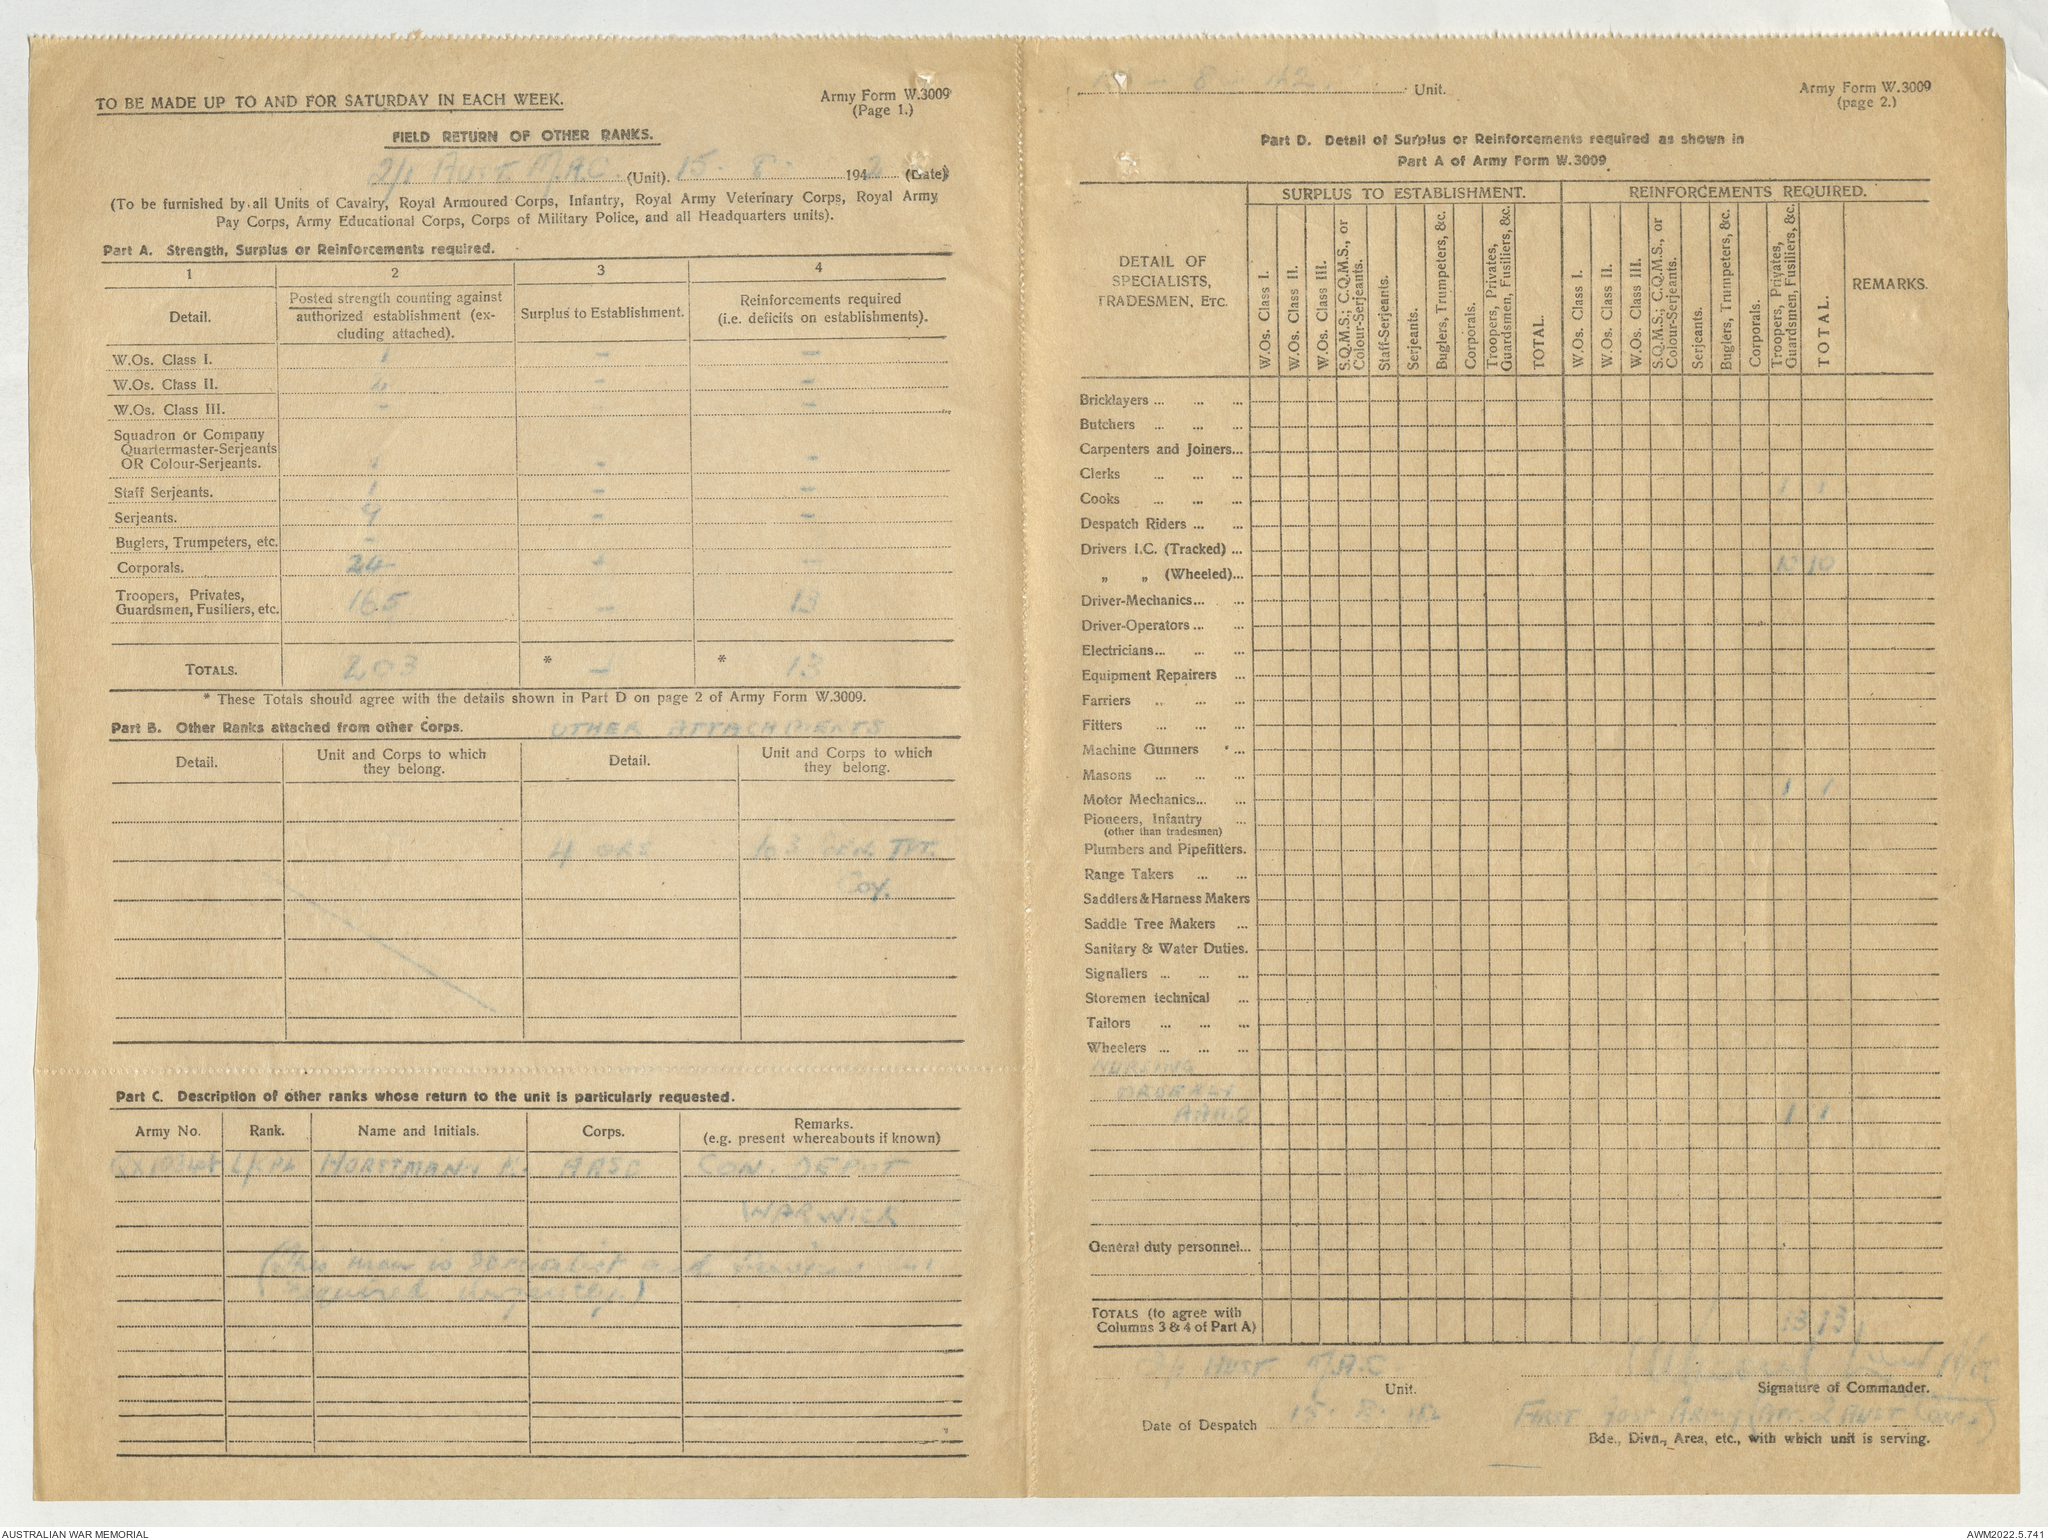 TO BE MADE UP TO AND FOR SATURDAY IN EACH WEEK.
Army Form W.3009
(Page 1.)
FIELD RETURN OF OTHER RANKS.
2/1 Aust M.A.C. (Unit). 15 - 8 - 1942 (Date)
(To be furnished by all Units of Cavalry, Royal Armoured Corps, Infantry, Royal Army Veterinary Corps, Royal Army
Pay Corps, Army Educational Corps, Corps of Military Police, and all Headquarters units).
Part A. Strength, Surplus or Reinforcements required.
1 2 3 4
Detail. Posted strength counting against authorized establishment (excluding attached). Surplus to Establishment. Reinforcements required (i.e. deficits on establishments).
W.Os. Class I. 1 - -
W.Os. Class II. - -
W.Os. Class III. - -
Squadron or Company
Quartermaster-Serjeants
OR Colour-Serjeants. 1 - -
Staff Serjeants. 1 - -
Serjeants. - -
Buglers, Trumpeters, etc. -
Corporals. 24 -
Troopers, Privates,
Guardsmen, Fusiliers, etc. 165 - 13
TOTALS. 203 * - * 13
* These Totals should agree with the details shown in Part D on page 2 of Army Form W.3009.
Part B. Other Ranks attached from other Corps. OTHER ATTACHMENTS
Detail. Unit and Corps to which they belong. Detail. Unit and Corps to which they belong.
4 ORS 103 GEN. TPT.
Coy.
Part C. Description of other ranks whose return to the unit is particularly requested.
Army No. Rank. Name and Initials. Corps. Remarks.
(e.g. present whereabouts if known)
L/CPL HORSTMAN AASC CON. DEPOT
WARWICK
(This man is specialist and
required urgently.)
8 - 42. Unit.
Army Form W.3009
(page 2.)
Part D. Detail of Surplus or Reinforcements required as shown in
Part A of Army Form W.3009
DETAIL OF
SPECIALISTS,
TRADESMEN, ETC.
SURPLUS TO ESTABLISHMENT. REINFORCEMENTS REQUIRED.
W.Os. Class I.
W.Os. Class II.
W.Os. Class III.
S.Q.M.S.; C.Q.M.S., or Colour-Serjeants.
Staff-Serjeants.
Serjeants.
Buglers, Trumpeters, &c.
Corporals.
Troopers, Privates, Guardsmen, Fusiliers, &c.
TOTAL.
W.Os. Class I.
W.Os. Class II.
W.Os. Class III.
S.Q.M.S.; C.Q.M.S., or Colour-Serjeants.
Serjeants.
Buglers, Trumpeters, &c.
Corporals.
Troopers, Privates, Guardsmen, Fusiliers, &c.
TOTAL.
REMARKS.
Bricklayers ... ... ...
Butchers ... ... ...
Carpenters and Joiners...
Clerks ... ... ...
Cooks ... ... ... 1 1
Despatch Riders ... ...
Drivers I.C. (Tracked) ...
„ „ (Wheeled)... 10 10
Driver-Mechanics... ...
Driver-Operators ... ...
Electricians... ... ...
Equipment Repairers ...
Farriers ... ... ...
Fitters ... ... ...
Machine Gunners ...
Masons ... ... ...
Motor Mechanics... ... 1 1
Pioneers, Infantry ...
(other than tradesmen)
Plumbers and Pipefitters.
Range Takers ... ...
Saddlers & Harness Makers
Saddle Tree Makers ...
Sanitary & Water Duties.
Signallers ... ... ...
Storemen technical ...
Tailors ... ... ...
Wheelers ... ... ...
NURSING
ORDERLY
1 1
General duty personnel...
TOTALS (to agree with
Columns 3 & 4 of Part A) 13 13
2/1 AUST M.A.C
Unit.
Signature of Commander.
Date of Despatch 15. 8. 42
FIRST AUST ARMY (ATT. 2 AUST CORPS)
Bde., Divn., Area, etc., with which unit is serving.
AUSTRALIAN WAR MEMORIAL
AWM2022.5.741